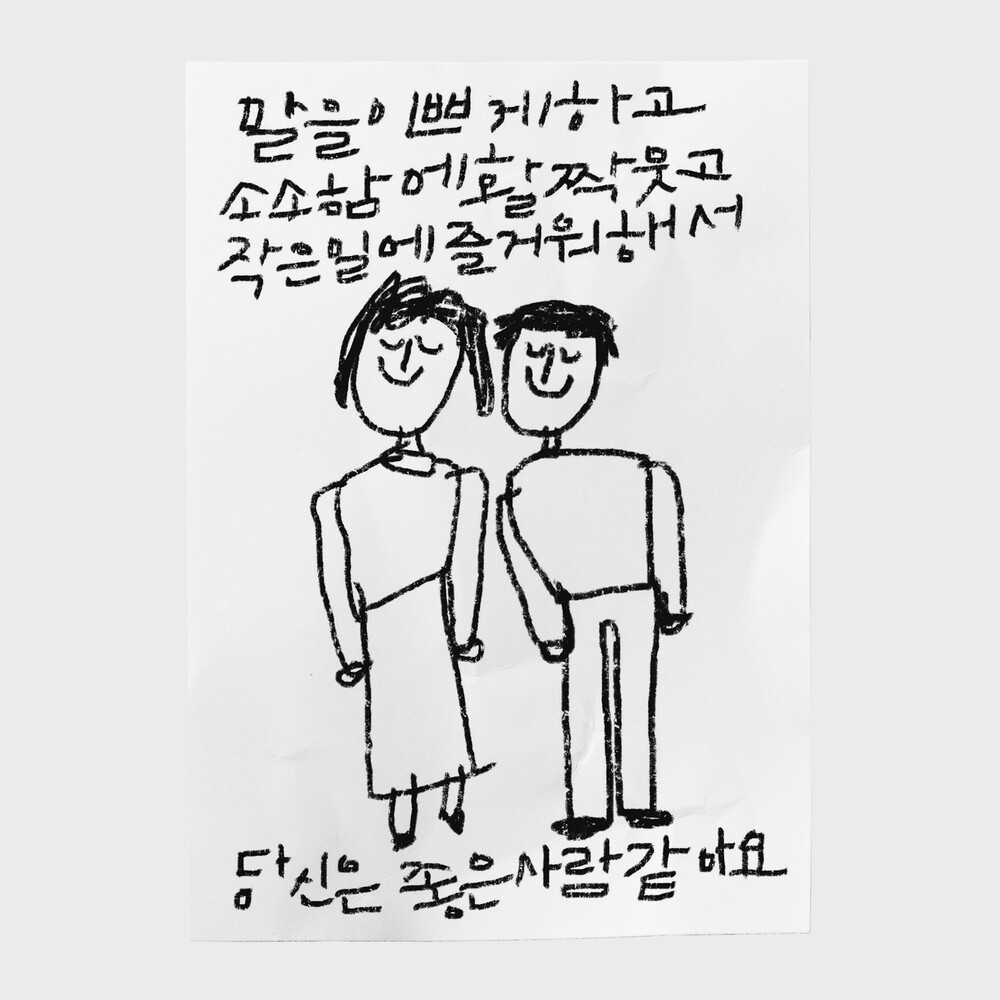 말을이쁘게하고
소소함에활짝웃고
작은일에즐거워해서
당신은 좋은사람같아요